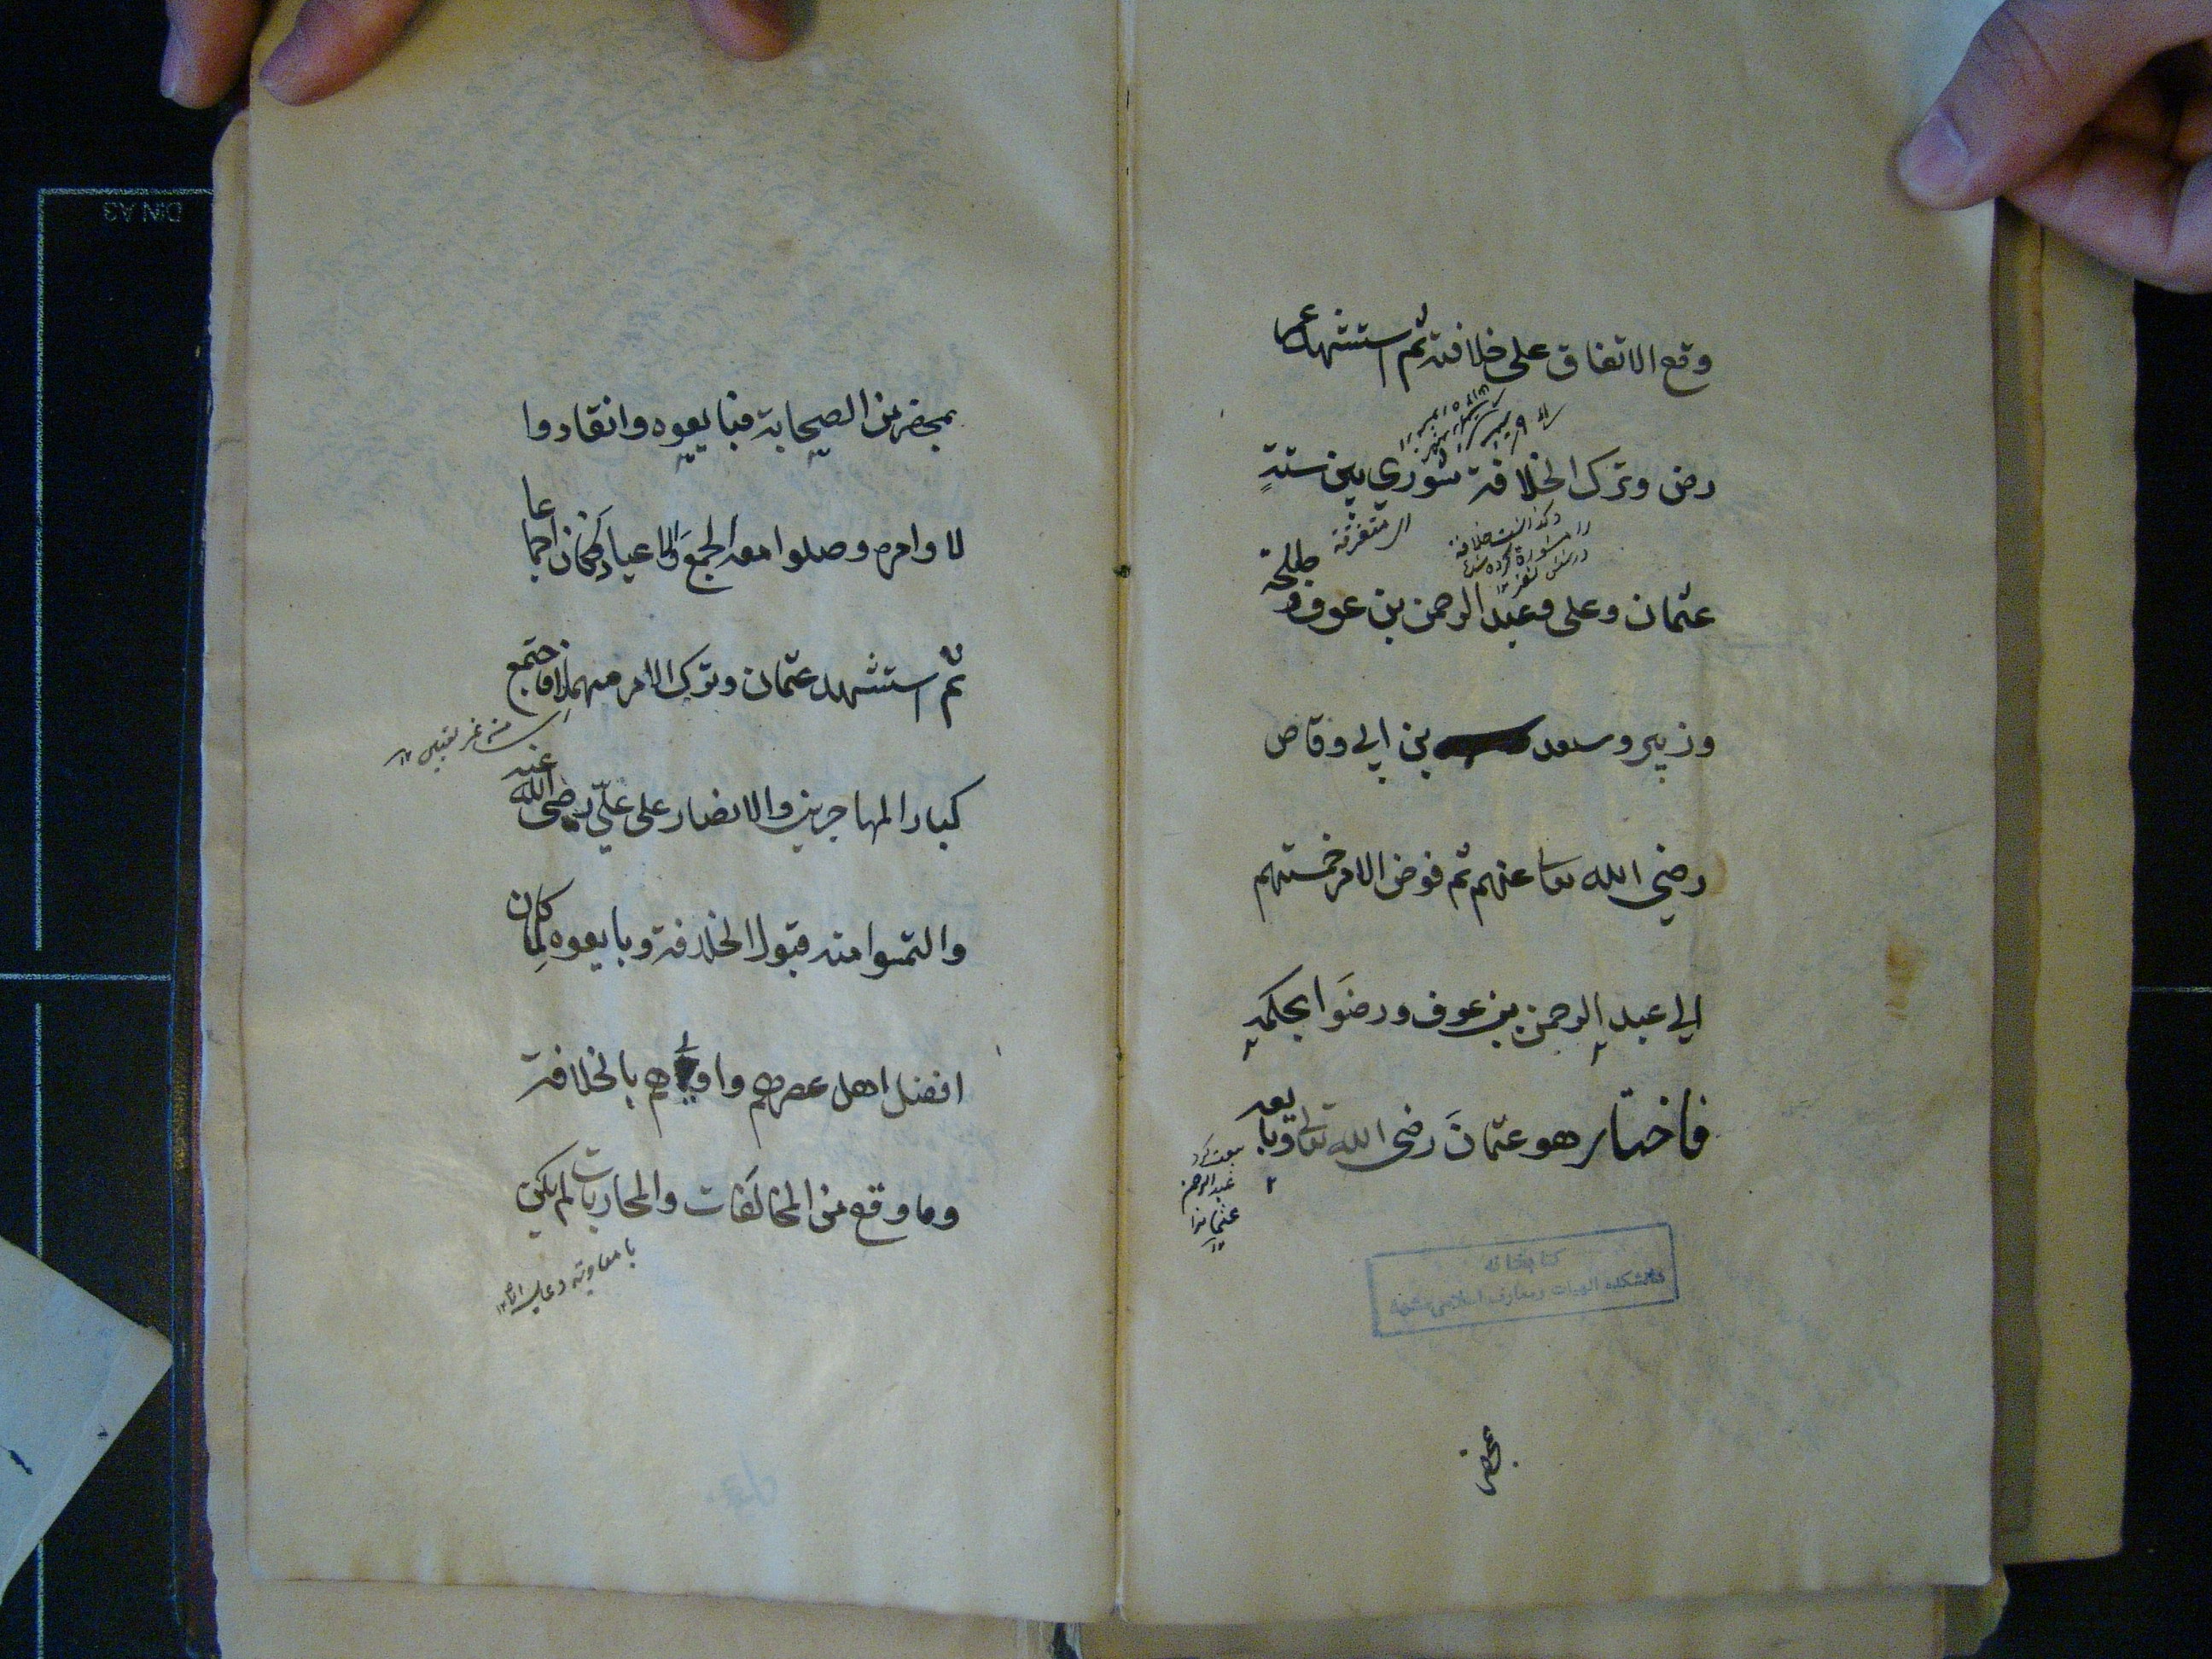 وقع الاتفاق على خلافته ثم استشهد عمر
رض وترك الخلافة شورى بين ستةٍ
اى متفرقة
وكذا اشت خلافة
را مشورة كرده شد
عثمان وعلى وعبد الرحمن بن عوف وطلحة
وزبير وسعد بن ابي وقاص
رضي الله تعا عنهم ثم فوض الامر خمستهم
الي عبد الرحمن بن عوف ورضَوا بحكمه
فاختار هو عثمانَ رضى الله تعالى وبايعه
بيعت كرد
عبد الرحمن
عثمانرا
كتابخانه
دانشكده الهيات ومعارف اسلامى مشهد
بمحضر
بمحضر من الصحابة فبايعوه وانقادوا
لاوامره وصلوا معه الجمعَ والاعياد فكان اجماعا
ثم استشهد عثمان وترك الامر مهملا فاجتمع
من غير تعيين ١٢
كبار المهاجرين والانصار على عليّ رضى الله عنه
والتمسوا منه قبول الخلافة وبايعوه لِما كان
افضل اهل عصرهم واوليهم بالخلافة
وما وقع من المخالَفات والمحاربات لم يكن
با معاوية وعايشة ١٢